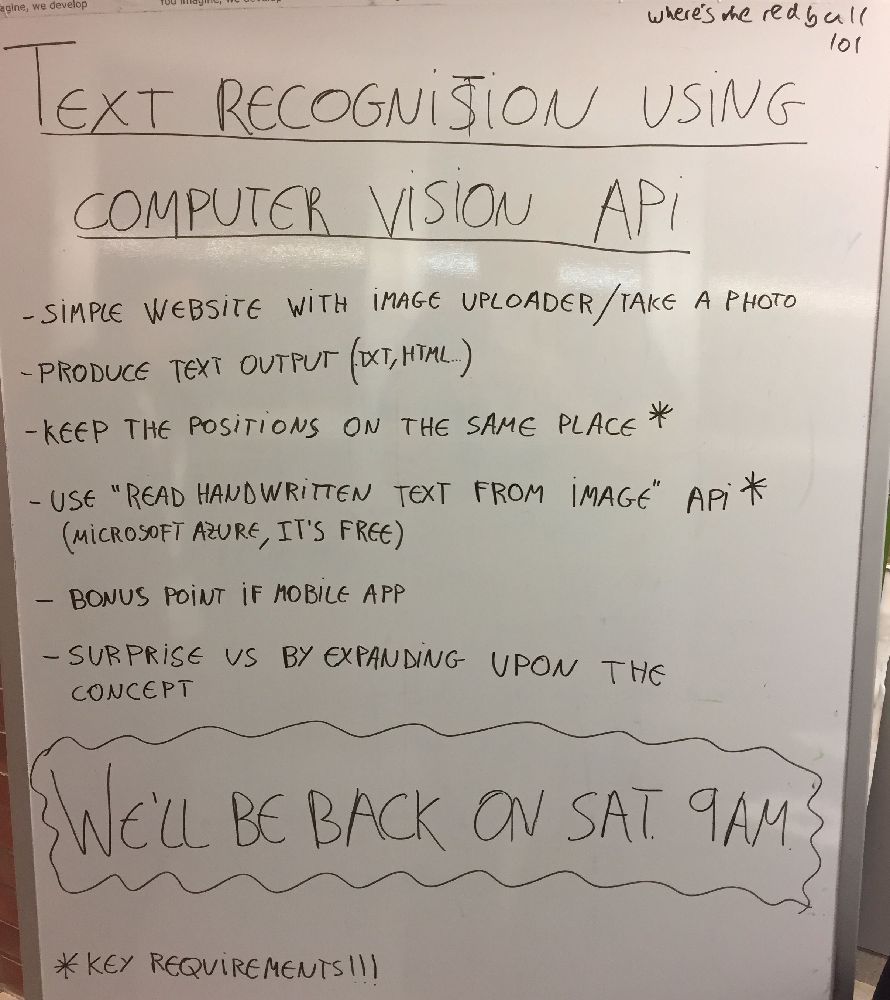 agine, we develop
where's the red ball
101
TEXT RECOGNISION USING
COMPUTER VISION API
- SIMPLE WEBSITE WITH IMAGE UPLOADER/TAKE A PHOTO
- PRODUCE TEXT OUTPUT (TXT, HTML...)
- KEEP THE POSITIONS ON THE SAME PLACE *
- USE "READ HANDWRITTEN TEXT FROM IMAGE" API *
(MICROSOFT AZURE, IT'S FREE)
- BONUS POINT IF MOBILE APP
- SURPRISE US BY EXPANDING UPON THE
CONCEPT
WE'LL BE BACK ON SAT. 9AM.
* KEY REQUIREMENTS!!!